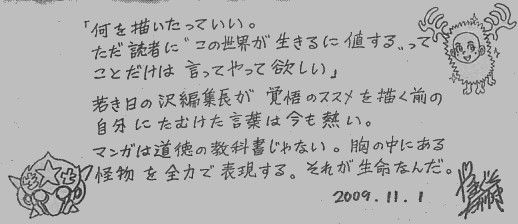 「何を描いたっていい。
ただ読者に“この世界が生きるに値する”って
ことだけは言ってやって欲しい」
若き日の沢編集長が覚悟のススメを描く前の
自分にたむけた言葉は今も熱い。
マンガは道徳の教科書じゃない。胸の中にある
怪物を全力で表現する。それが生命なんだ。
2009.11.1